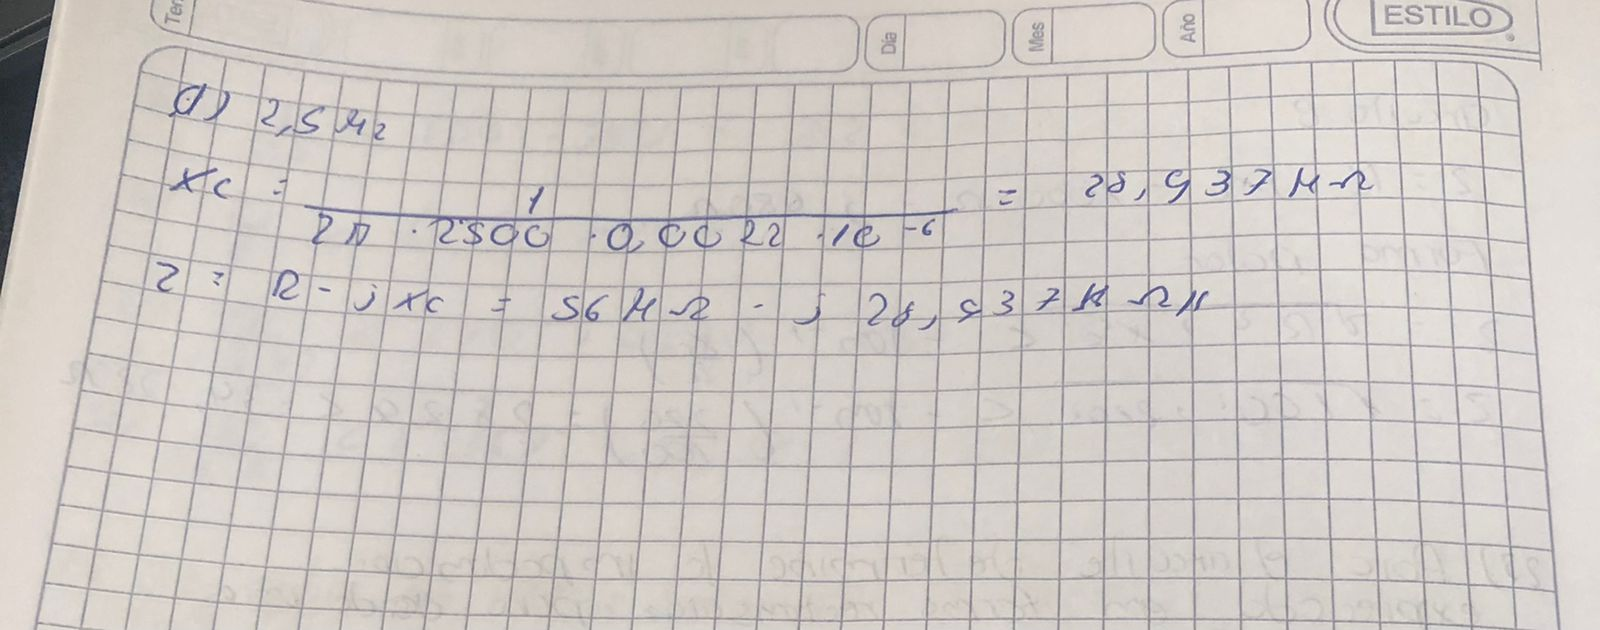 Día
Mes
Año
ESTILO
d) 2,5 KHz
Xc = 1 / 2π · 2500 · 0,0022 · 10⁻⁶ = 28,937 KΩ
Z = R - j Xc = 56 KΩ - j 28,937 KΩ